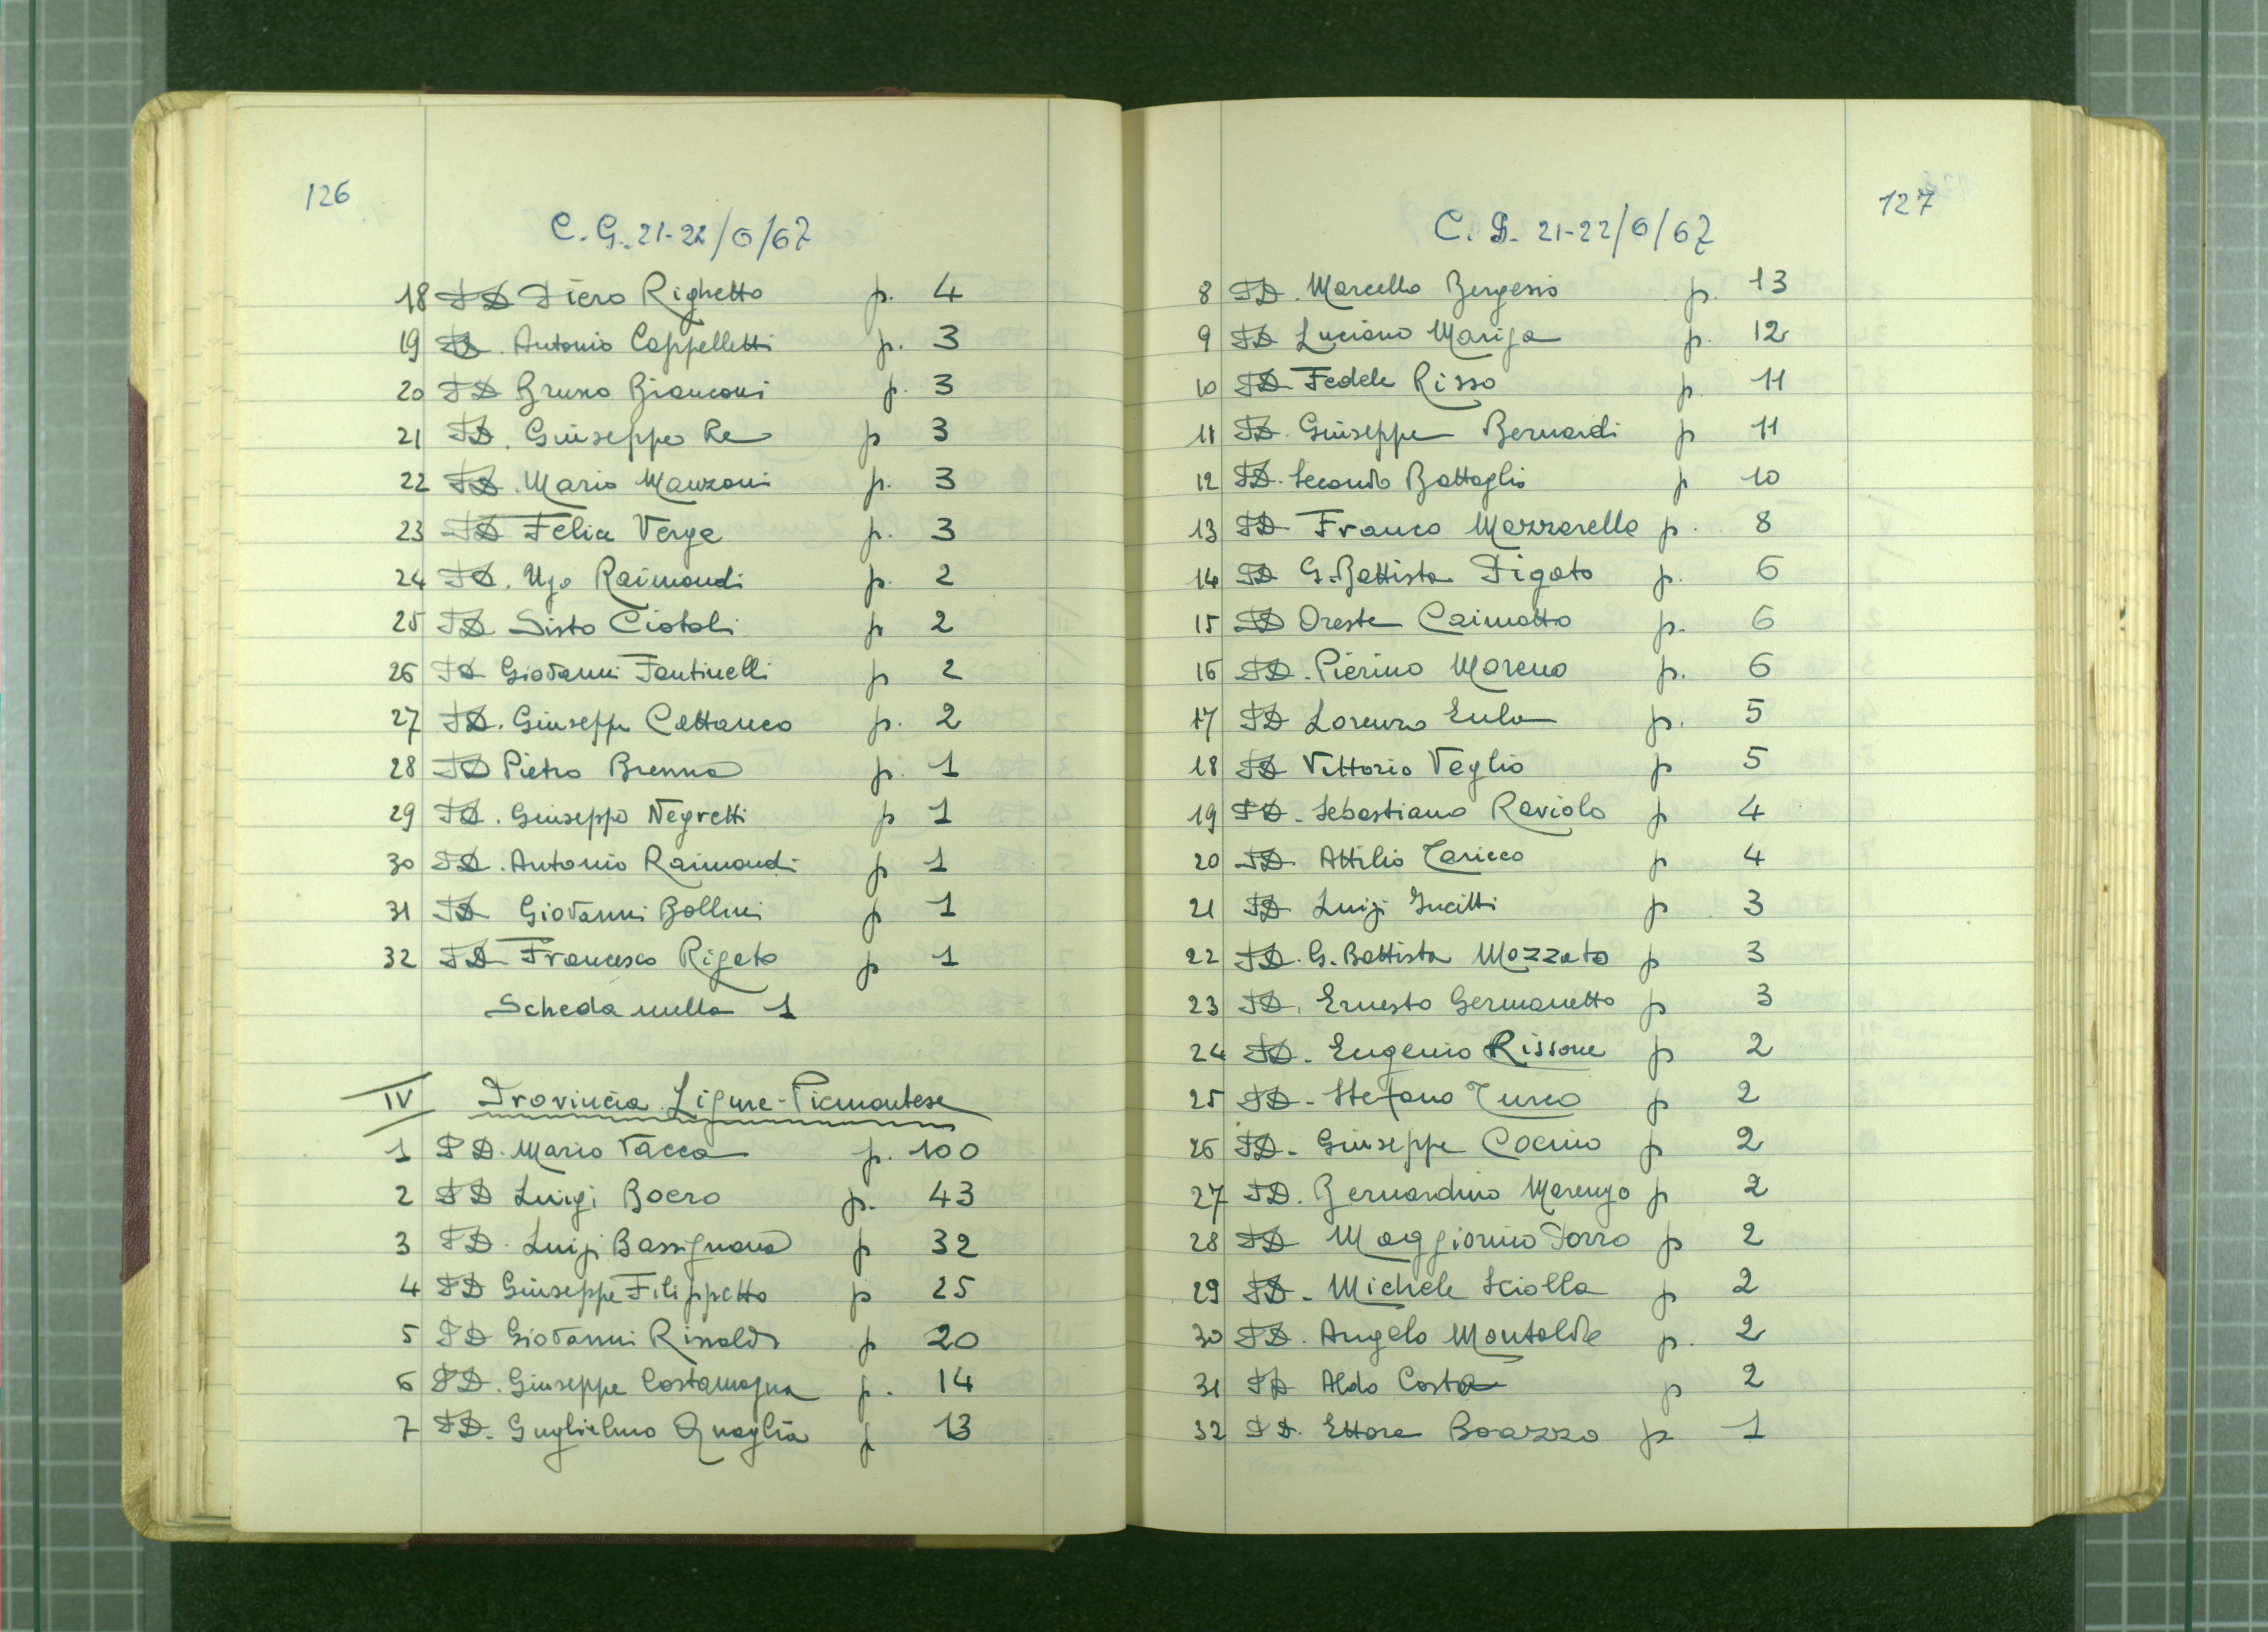 126
C. G. 21-22/6/67
18 PD Piero Righetto p. 4
19 PD. Antonio Cappelletti p. 3
20 PD Bruno Bianconi p. 3
21 PD. Giuseppe Re p 3
22 PD. Mario Manzoni p. 3
23 PD Felice Verga p. 3
24 PD. Ugo Raimondi p. 2
25 PD Sisto Ciotoli p 2
26 PD Giovanni Fantinelli p 2
27 PD. Giuseppe Cattaneo p. 2
28 PD Pietro Brenna p. 1
29 PD. Giuseppe Negretti p 1
30 PD. Antonio Raimondi p 1
31 PD Giovanni Bollini p 1
32 PD Francesco Rigato p 1
Scheda nulla 1
IV Provincia Ligure-Piemontese
1 PD. Mario Vacca p. 100
2 PD Luigi Boero p. 43
3 PD. Luigi Bassignana p 32
4 PD Giuseppe Filippetto p 25
5 PD Giovanni Rinaldi p 20
6 PD. Giuseppe Costamagna p. 14
7 PD. Guglielmo Quaglia p 13
127
C. G. 21-22/6/67
8 PD. Marcello Bergesio p. 13
9 PD Luciano Mariga p. 12
10 PD Fedele Risso p. 11
11 PD. Giuseppe Bernardi p 11
12 PD. Secondo Battaglio p 10
13 PD Franco Mazzarello p. 8
14 PD G. Battista Pigato p. 6
15 PD Oreste Caimotto p. 6
16 PD. Pierino Moreno p. 6
17 PD Lorenzo Eula p. 5
18 PD Vittorio Veglio p 5
19 PD. Sebastiano Raviolo p 4
20 PD. Attilio Taricco p 4
21 PD Luigi Incitti p 3
22 PD. G. Battista Mazzato p 3
23 PD. Ernesto Germanetto p 3
24 PD. Eugenio Rissone p 2
25 PD. Stefano Turco p 2
26 PD. Giuseppe Cocino p 2
27 PD. Bernardino Marengo p 2
28 PD Maggiorino Porro p 2
29 PD. Michele Sciolla p 2
30 PD. Angelo Montaldo p. 2
31 PD Aldo Costa p 2
32 PD. Ettore Boazzo p 1